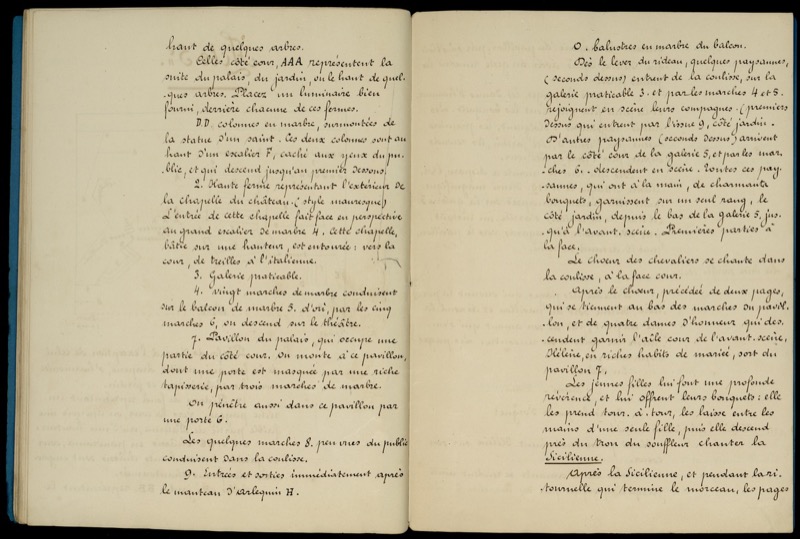 haut de quelques arbres.
Celles côté cour, AAA représentent la
suite du palais, du jardin, ou le haut de quel-
-ques arbres. Placez un luminaire bien
fourni, derrière chacune de ces fermes.
D.D. colonnes en marbre, surmontées de
la statue d'un saint. Ces deux colonnes sont au
haut d'un escalier F, caché aux yeux du pu-
blic, et qui descend jusqu'au premier dessous.
2. Haute ferme représentant l'extérieur de
la chapelle du château. (style mauresque)
L'entrée de cette chapelle fait face en perspective
au grand escalier de marbre 4. Cette chapelle,
bâtie sur une hauteur, est entourée: vers la
cour, de treilles à l'italienne.
3. Galerie praticable.
4. vingt marches de marbre conduisent
sur le balcon de marbre 5. d'où, par les cinq
marches 6, on descend sur le théâtre.
7. Pavillon du palais, qui occupe une
partie du côté cour. On monte à ce pavillon,
dont une porte est masquée par une riche
tapisserie, par trois marches de marbre.
On pénètre aussi dans ce pavillon par
une porte 6.
Les quelques marches 8. peu vues du public
conduisent dans la coulisse.
9. Entrées et sorties immédiatement après
le manteau d'arlequin H.
O. balustres en marbre du balcon.
Dès le lever du rideau, quelques paysannes,
(seconds dessus) entrent de la coulisse, sur la
galerie praticable 3. et par les marches 4 et 8.
rejoignent en scène leurs compagnes. (premiers
dessus qui entrent par l'issue 9, côté jardin.
D'autres paysannes (seconds dessus) arrivent
par le côté cour de la galerie 5, et par les mar-
-ches 6. descendent en scène. Toutes ces pay-
-sannes, qui ont à la main, de charmants
bouquets, garnissent sur un seul rang, le
côté jardin, depuis le bas de la galerie 5, jus-
-qu'à l'avant-scène. Premières parties à
la face.
Le chœur des chevaliers se chante dans
la coulisse, à la face cour.
Après le chœur, précédée de deux pages,
qui se tiennent au bas des marches du pavil-
-lon, et de quatre dames d'honneur qui des-
-cendent garnir l'aile cour de l'avant-scène,
Hélène, en riches habits de mariée, sort du
pavillon 7.
Les jeunes filles lui font une profonde
révérence, et lui offrent leurs bouquets: elle
les prend tour-à-tour, les laisse entre les
mains d'une seule fille, puis elle descend
près du trou du souffleur chanter la
Sicilienne.
Après la Sicilienne, et pendant la ri-
-tournelle qui termine le morceau, les pages